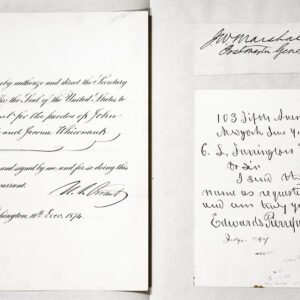 reby authorize and direct the Secretary
the Seal of the United States to
for the pardon of John
and Jerome Whisenant
and signed by me, and for so doing this
warrant.
U. S. Grant
hington, 10th Dec. 1874.
J W Marshal
Postmaster Gene
103 Fifth Aven
New York
C. L. Farrington
Sir
I send th
name as requeste
and am truly you
Edwards Pierrep